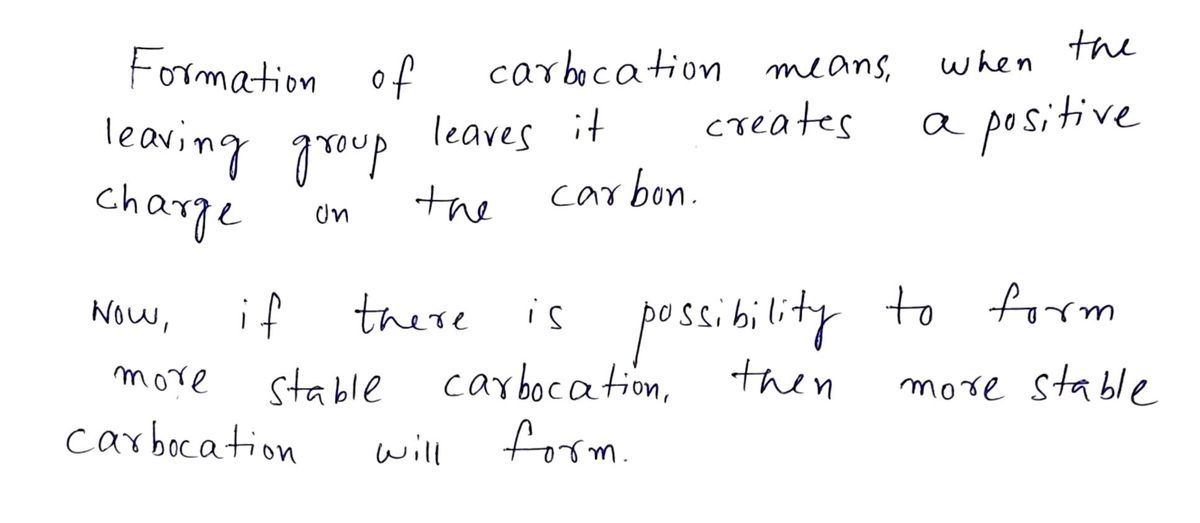 Formation of carbocation means, when the
leaving group leaves it creates a positive
charge on the carbon.
Now, if there is possibility to form
more stable carbocation, then more stable
carbocation will form.